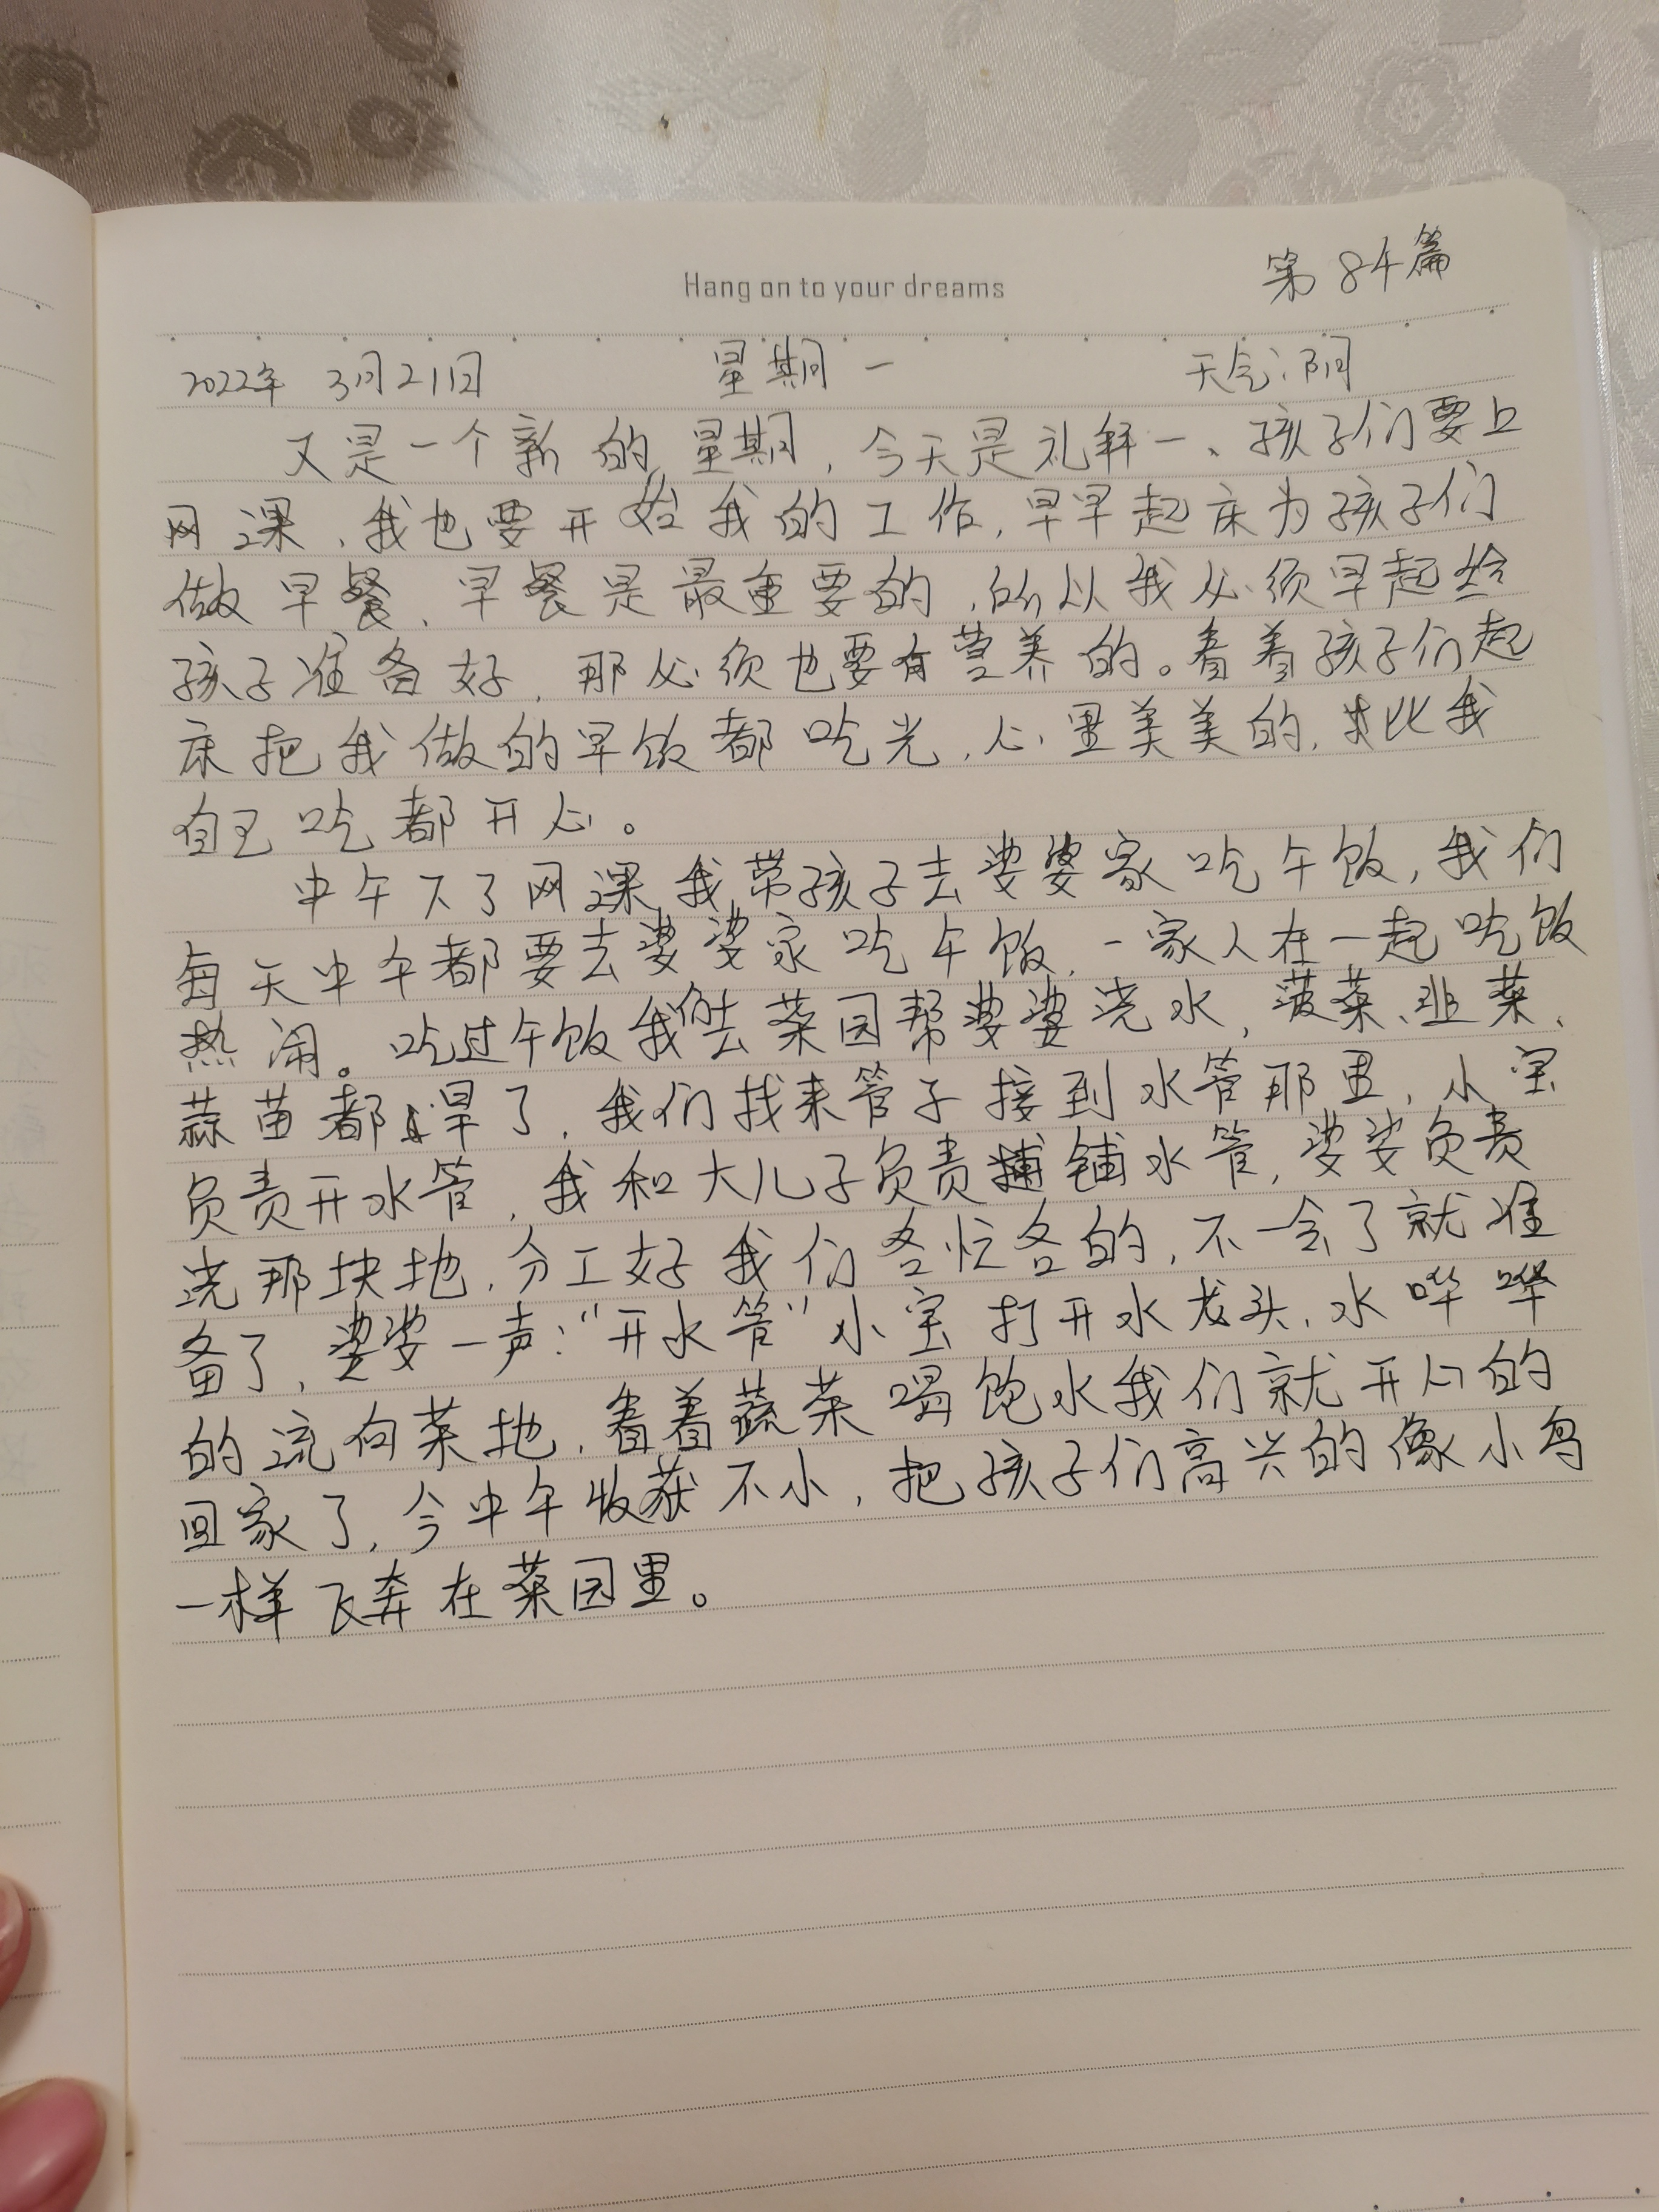 第84篇
Hang on to your dreams
2022年 3月21日 星期一 天气:阴
又是一个新的星期,今天是礼拜一、孩子们要上
网课,我也要开始我的工作,早早起床为孩子们
做早餐,早餐是最重要的,所以我必须早起给
孩子准备好,那必须也要有营养的。看着孩子们起
床把我做的早饭都吃光,心里美美的,比我
自己吃都开心。
中午下了网课,我带孩子去婆婆家吃午饭,我们
每天中午都要去婆婆家吃午饭,一家人在一起吃饭
热闹。吃过午饭我们去菜园帮婆婆浇水,菠菜、韭菜、
蒜苗都旱了,我们找来管子接到水管那里,小宝
负责开水管,我和大儿子负责铺水管,婆婆负责
浇那块地,分工好我们各忙各的,不一会了就准
备了,婆婆一声:“开水管”小宝打开水龙头,水哗哗
的流向菜地,看着蔬菜喝饱水我们就开心的
回家了,今中午收获不小,把孩子们高兴的像小鸟
一样飞奔在菜园里。